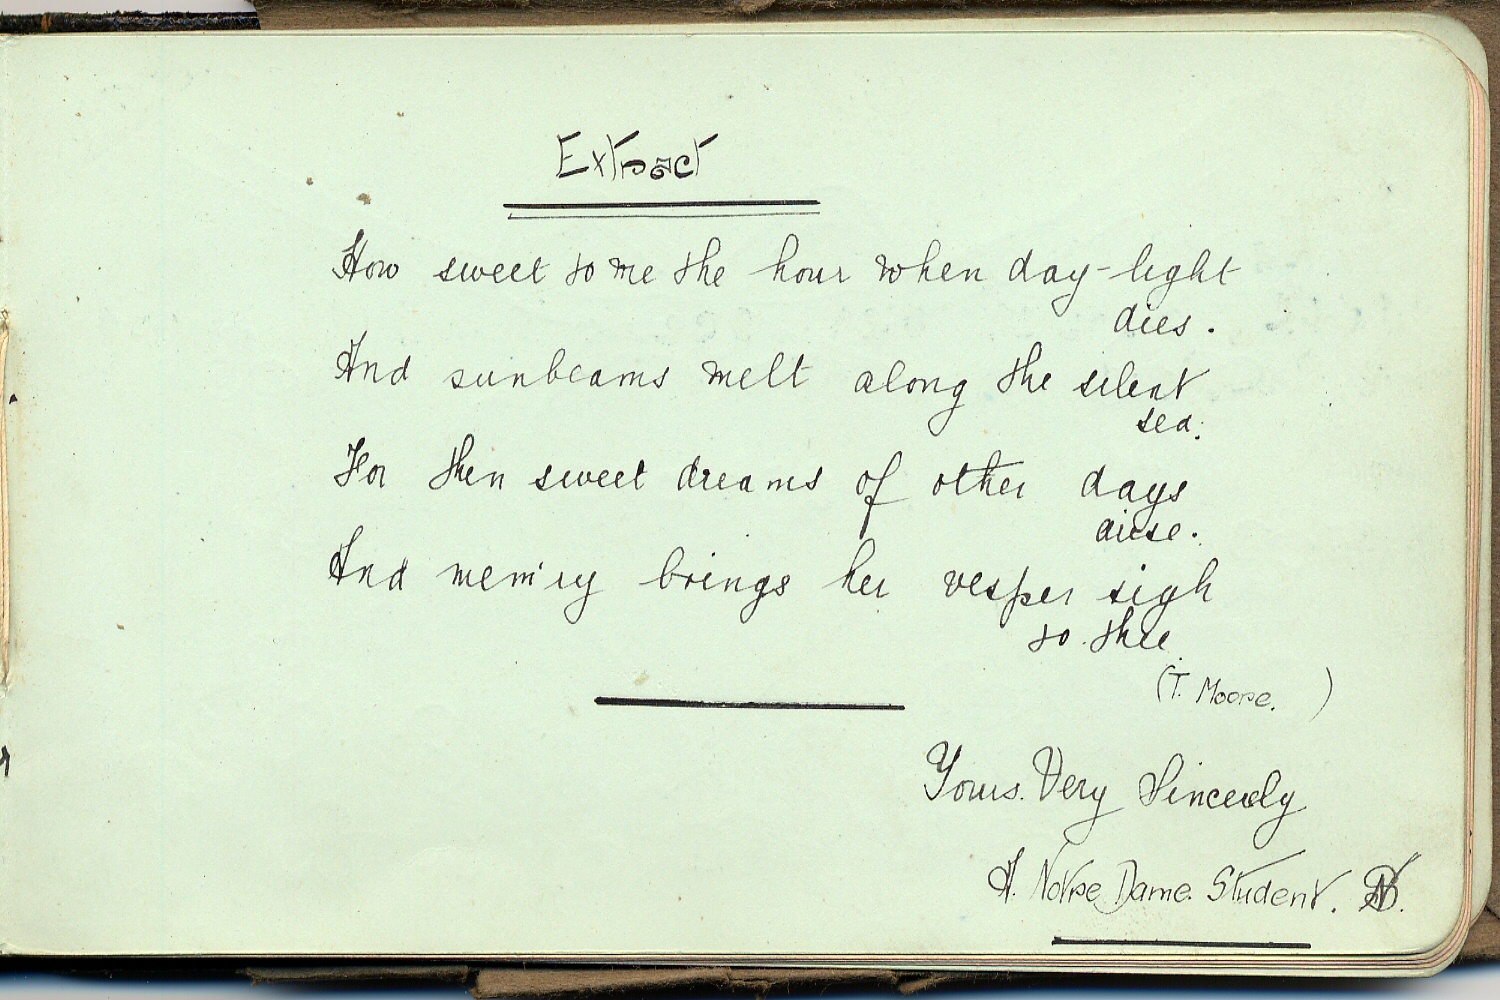 Extract
How sweet to me the hour when day-light
dies.
And sunbeams melt along the silent
sea.
For then sweet dreams of other days
arise.
And mem'ry brings her vesper sigh
to thee
(T. Moore. )
Yours. Very Sincerely
A. Notre Dame Student.